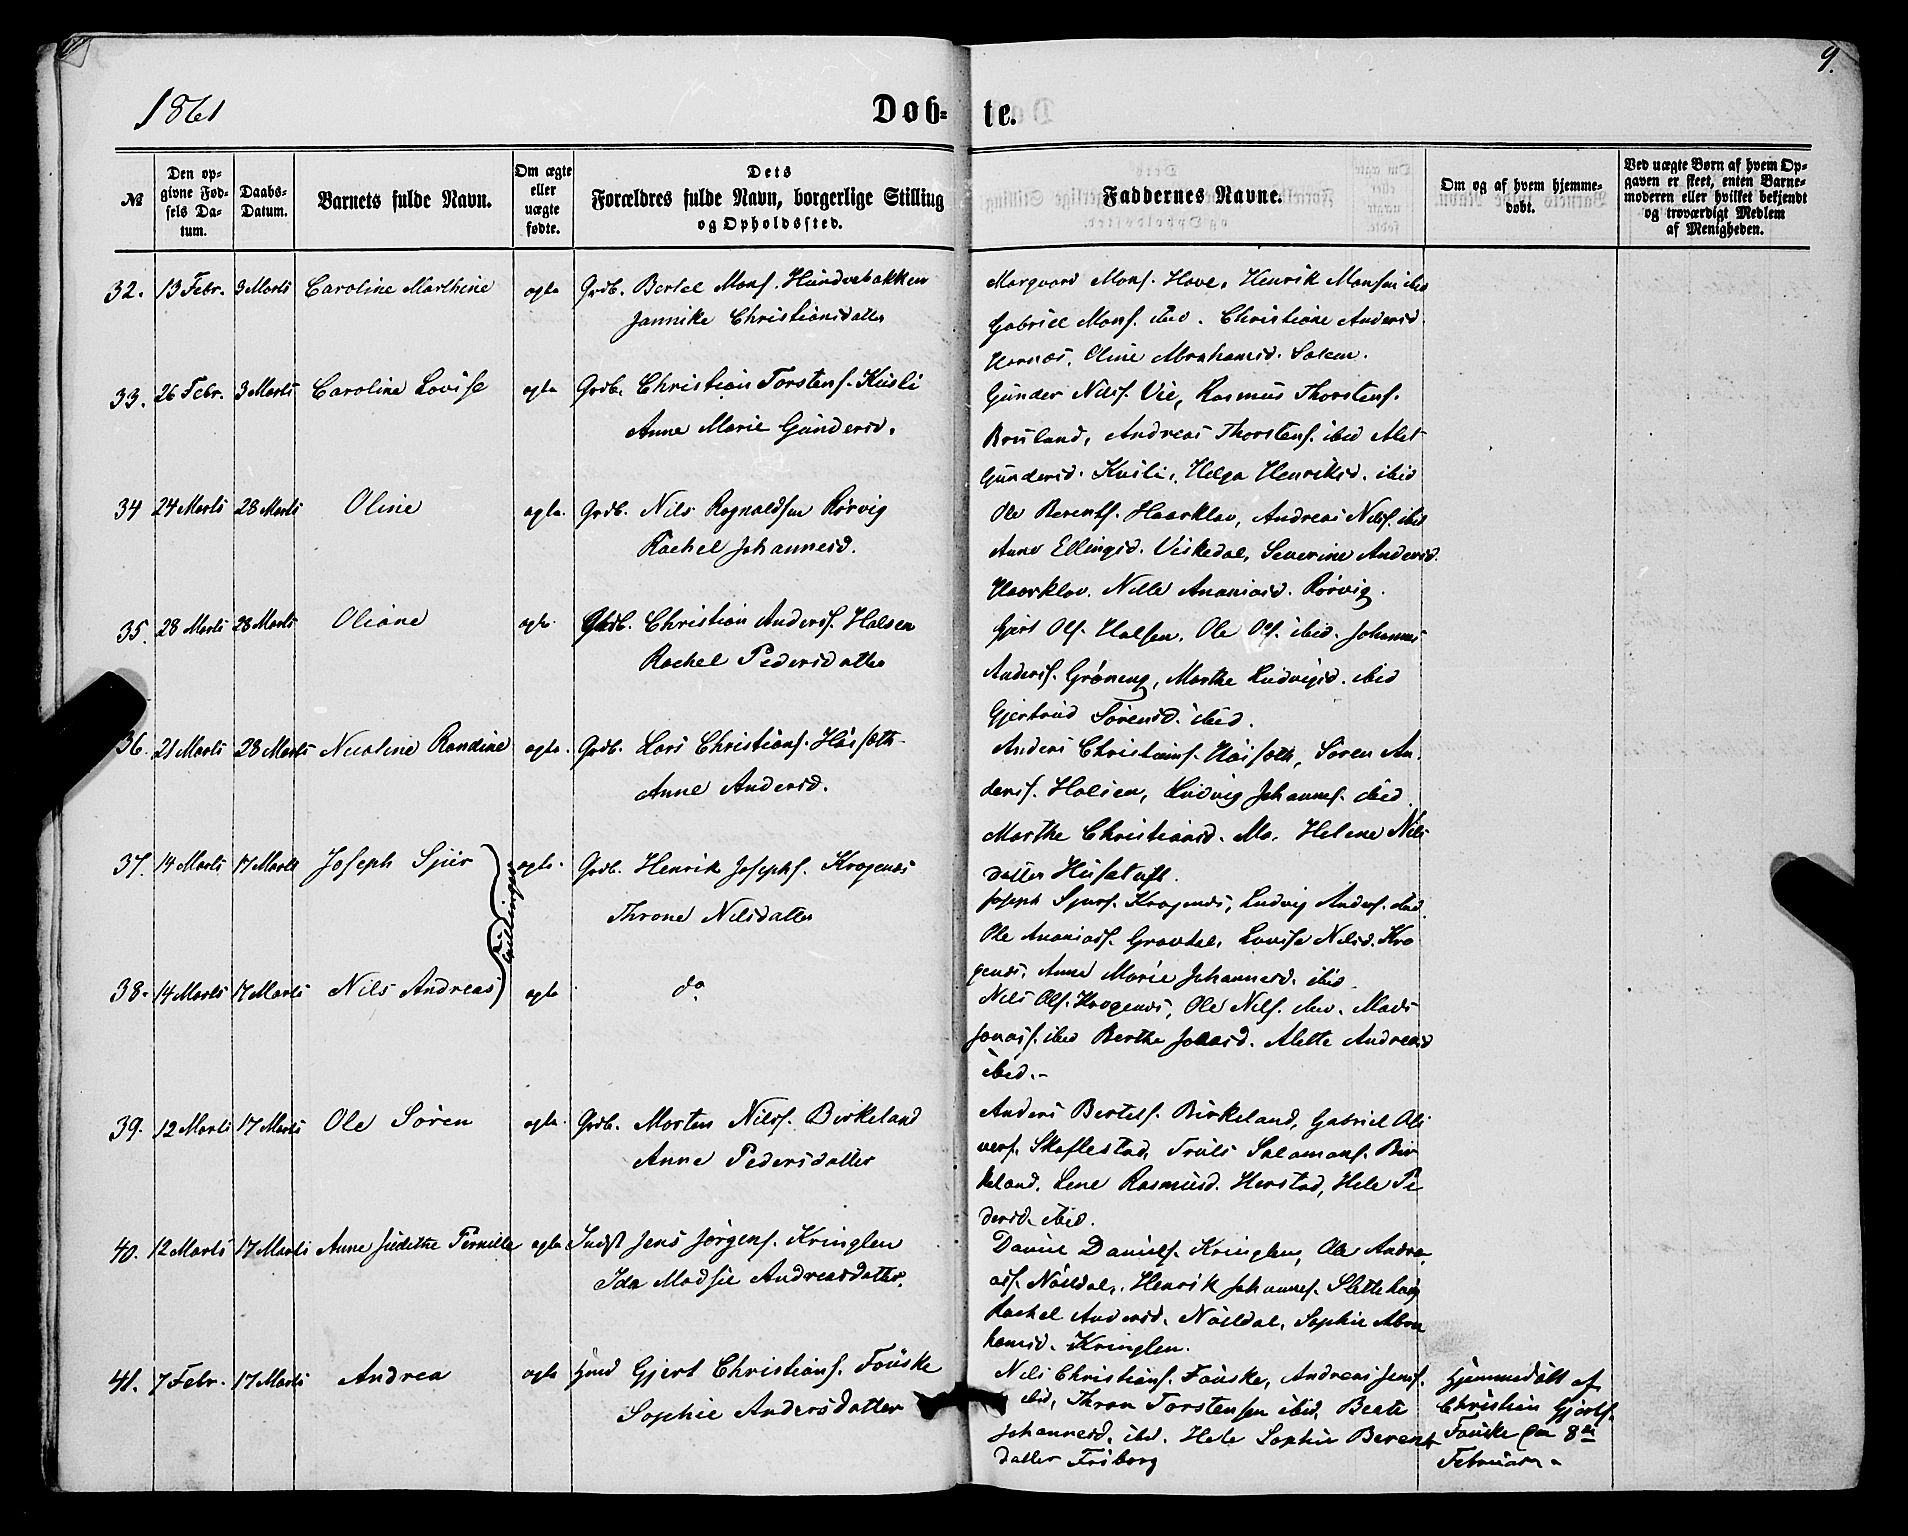 1861
Døb-
te.
9.
№
Den op-
givne Fød-
sels Da-
tum.
Daabs-
Datum.
Barnets fulde Navn.
Om ægte
eller
uægte
fødte.
Dets
Forældres fulde Navn, borgerlige Stilling
og Opholdssted.
Faddernes Navne.
Om og af hvem hjemme-
døbt.
Ved uægte Børn af hvem Op-
gaven er skeet, enten Barne-
moderen eller hvilket bekjendt
og troværdigt Medlem
af Menigheden.
32. 13 Febr. 3 Marts Caroline Marthine ægte Grdb. Bertel Mons. Hundvebakken
Jannike Christiansdatter
Mons. Hove, Henrik Monsen ibid
Gabriel Mons. ibid. Christiane Andersd.
Hornæs, Oline Abrahamsd. Solem.
33. 26 Febr. 3 Marts Caroline Lovise ægte Grdb. Christian Torstens. Kusli
Anne Marie Gundersd.
Gunder Nilss. Vie, Rasmus Thorstens.
Bruland, Andreas Thorstens. ibid Alet
Gundersd. Kusli, Helga Henriksd. ibid
34 24 Marts 28 Marts Oline ægte. Grdb. Nils Rognaldsen Rørvig
Rachel Johannesd.
Ole Berents. Haarklav, Andreas Nilss. ibid
Anne Ellingsd. Viskedal, Severine Andersd.
Haarklav. Nille Ananiasd. Rørvig.
35. 28 Marts 28 Marts Oliane ægte. Grdb. Christian Anderss. Halsen
Rachel Pedersdatter
Gjert Ols. Halsen. Ole Ols. ibid. Johannes
Anderss. Grøneng, Marthe Ludvigsd. ibid
Gjertrud Sørensd. ibid.
36. 21 Marts 28 Marts Nicoline Randine ægte. Grdb. Lars Christians. Høisæth
Anne Andersd.
Anders Christians. Høisæth, Søren An-
derss. Halsen, Ludvig Johannes. ibid.
Marthe Christiansd. Mo. Helene Nils
datter Husetuft.
37. 14 Marts 17 Marts Joseph Sjur ægte. Grdb. Henrik Josephs. Krogenæs
Throne Nilsdatter
Tvillinger
Joseph Sjurs. Krogenæs, Ludvig Anders. ibid.
Ole Ananiass. Gravdal, Lovise Nilsd. Kro
genæs, Anne Marie Johannesd. ibid.
38. 14 Marts 17 Marts Nils Andreas ægte do
Nils Ols. Krogenæs, Ole Nils. ibid. Mads
Jonass. ibid Berthe Jonasd. Alette Andreasd
ibid.-
39. 12 Marts 17 Marts Ole Søren ægte. Grdb. Morten Nilss. Birkeland
Anne Pedersdatter
Anders Bertels. Birkeland, Gabriel Oli
vers. Skaflestad, Truls Salamons. Bir
keland. Lene Rasmusd. Herstad, Hele Pe
dersd. ibid.
40. 12 Marts 17 Marts Anne Judithe Pernille ægte Indst Jens Jørgens. Kringlen
Ida Madsie Andreasdatter.
Daniel Daniels. Kringlen, Ole Andre
ass. Nøildal, Henrik Johannes. Slettehaug
Rachel Andersd. Nøildal, Sophie Abra
hamsd. Kringlen.
41. 7 Febr. 17 Marts Andrea ægte Hmd Gjert Christians. Fouske
Sophie Andersdatter
Nils Christians. Fouske, Andreas Jens.
ibid, Thron Torstensen ibid, Beate
Johannesd. ibid. Hele Sophie Berent
datter Friborg
Hjemmedøbt af
Christian Gjerts.
Fouske den 8de
Februar.